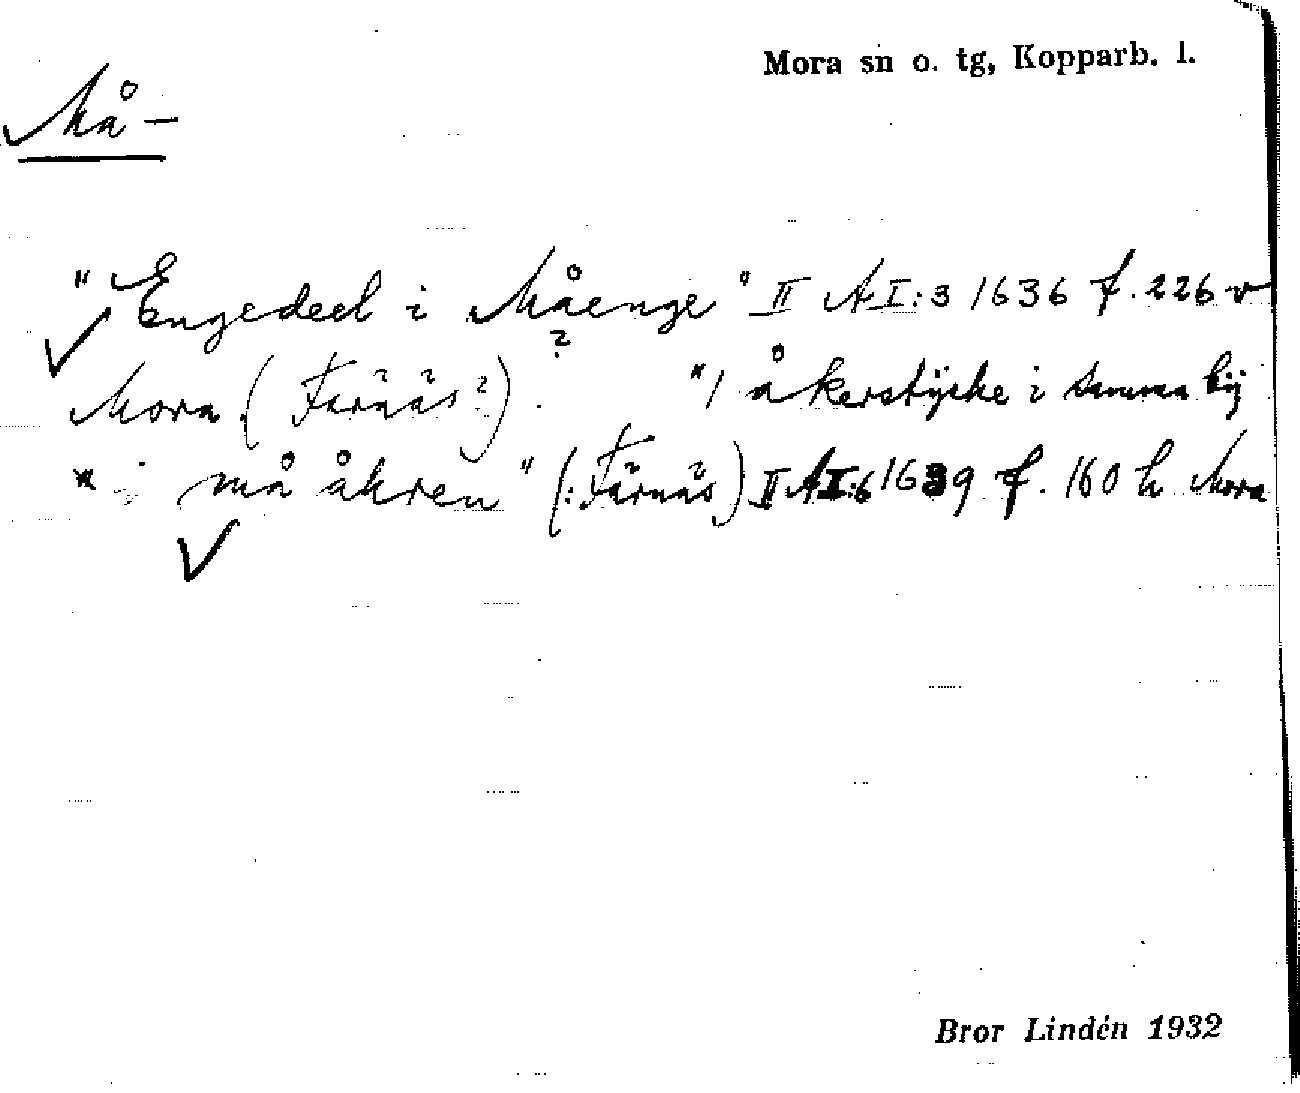 Mora sn o. tg, Kopparb. l.
Må-
"Engedeel i Måenge" II AI:3 1636 f. 226 v
?
Mora (Färnäs?). "1 åkerstycke i samma bÿ
" i må åkren" (: Färnäs) II AI:6 1639 f. 160 h Mora
Bror Lindén 1932